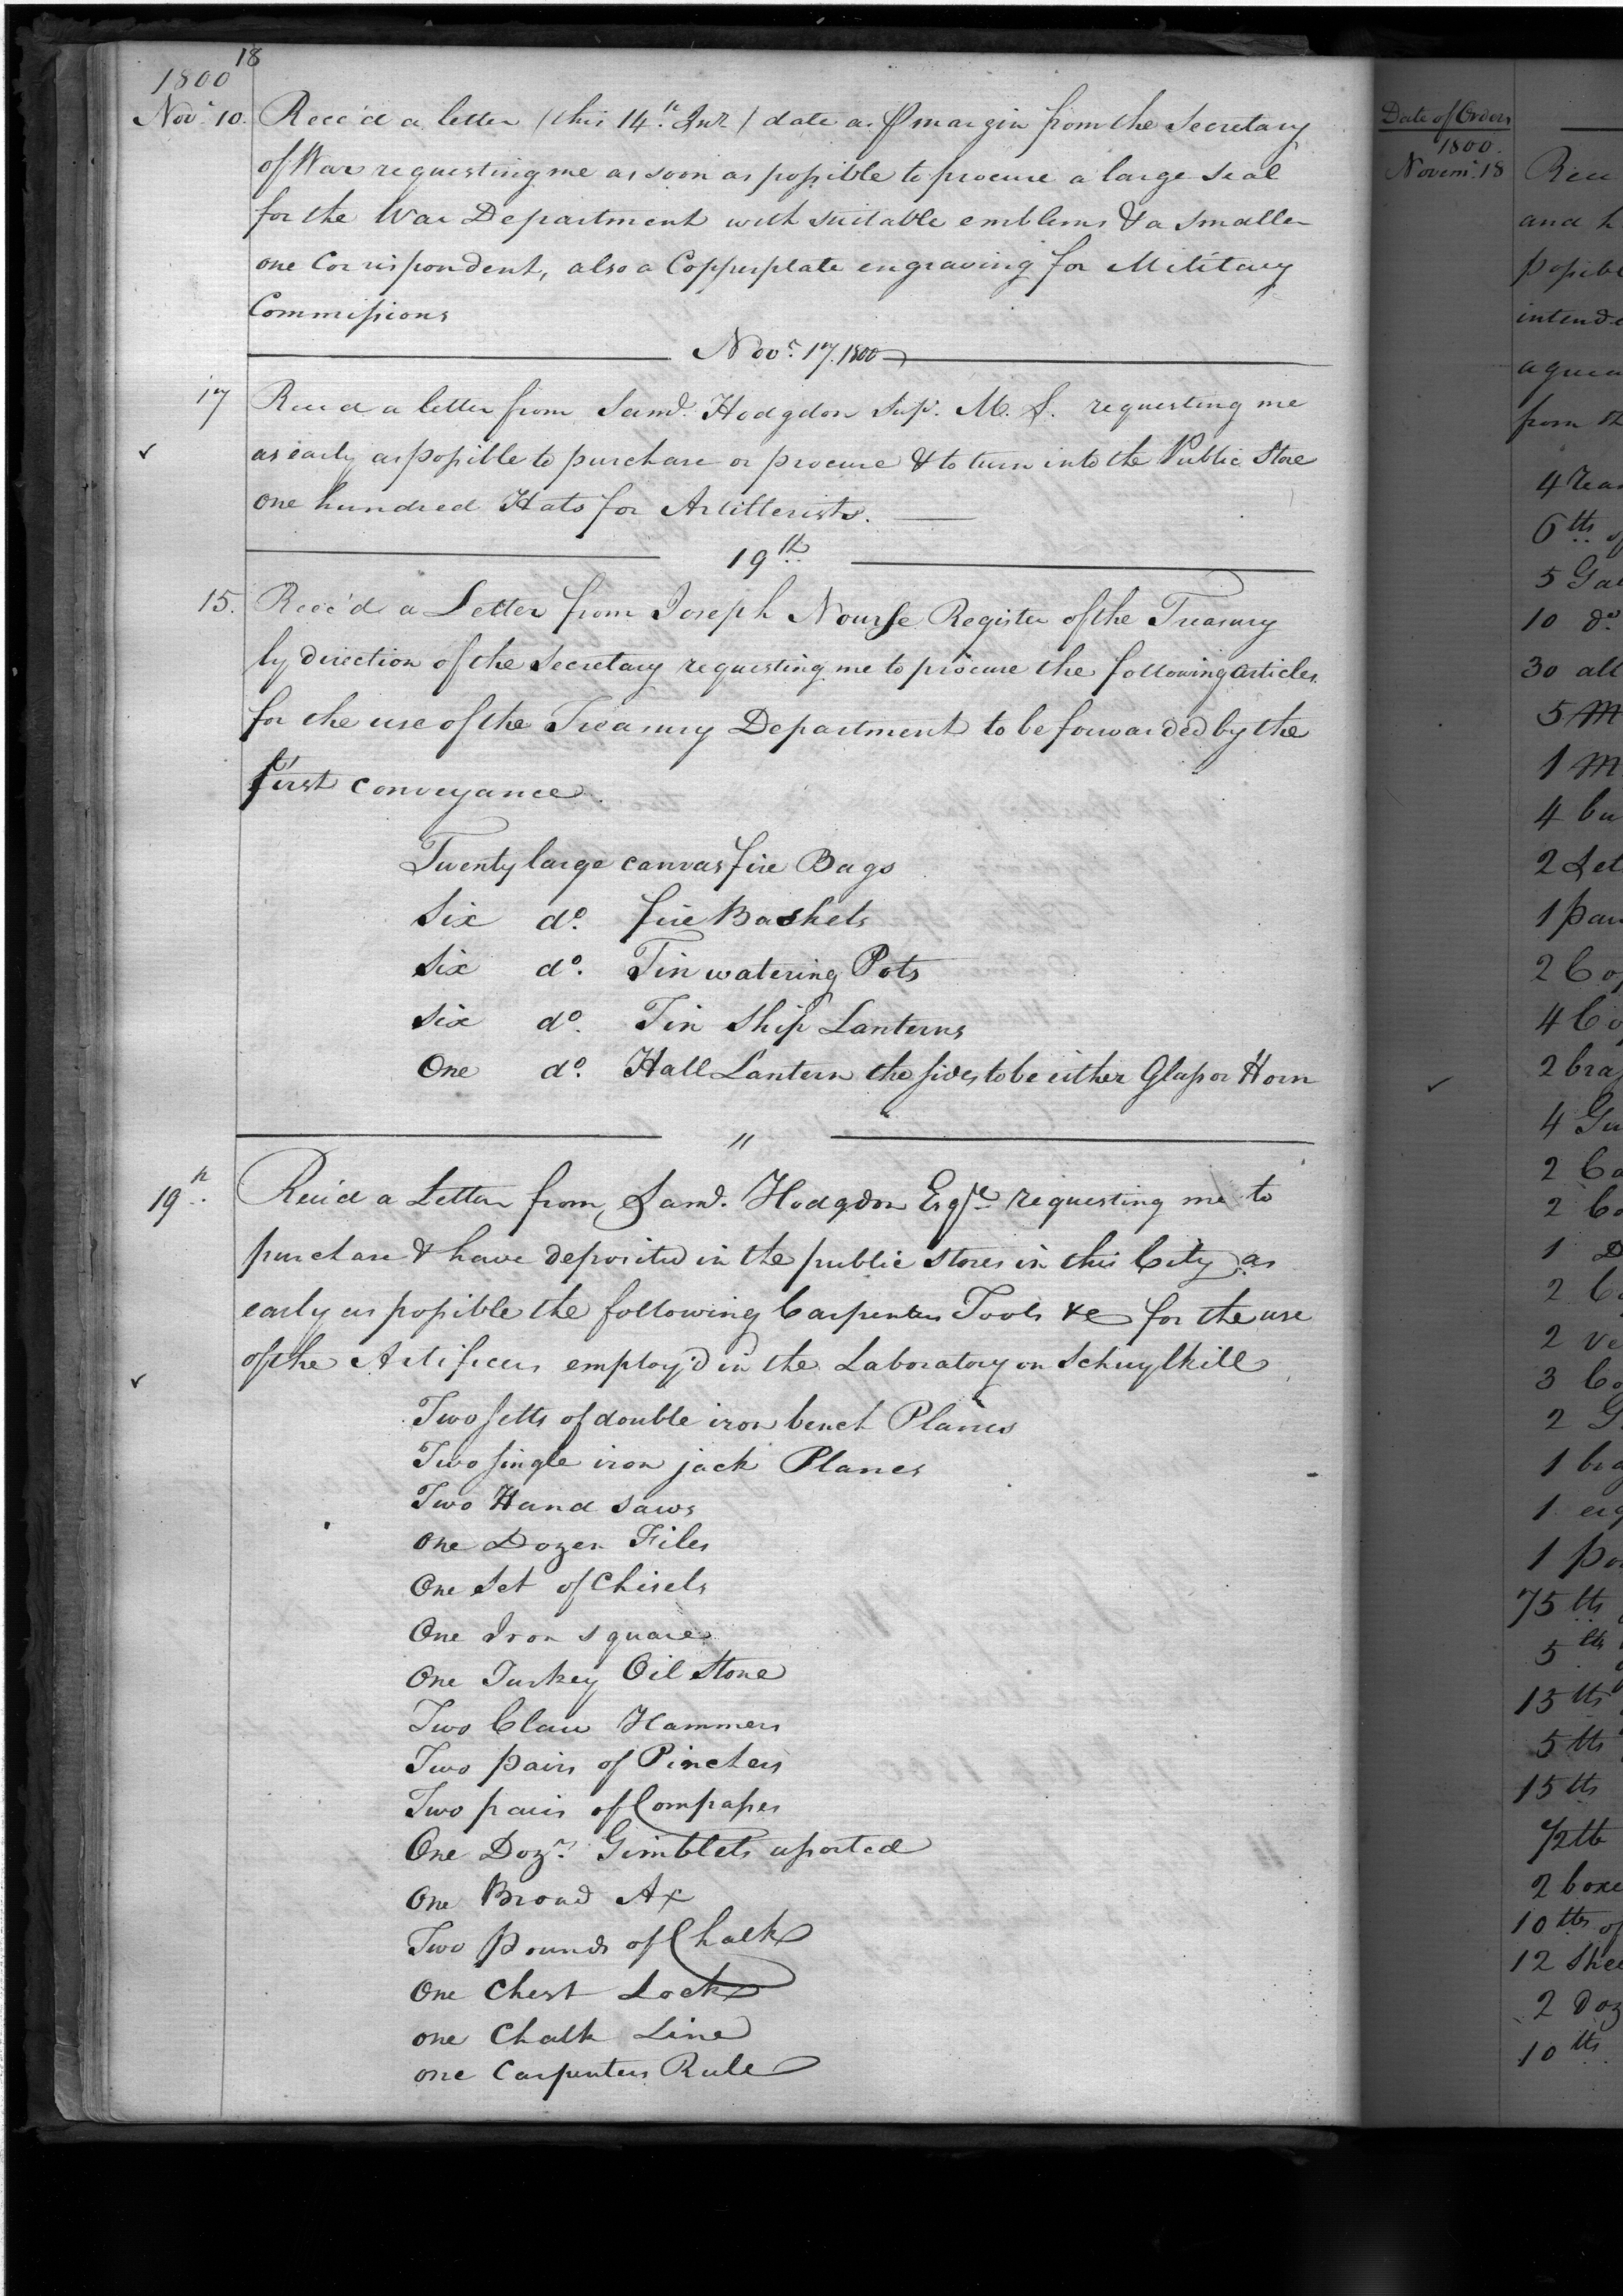 18
1800
Nov.r 10. Rece'd a letter (this 14.th Inst) date as pr margin from the Secretary
of War requesting me as soon as possible to procure a large seal
for the War Department with suitable emblems & a smaller
one Correspondent, also a Copperplate engraving for Military
Commissions
Nov.r 17. 1800
17 Rece'd a letter from Saml. Hodgdon Sup.t M. S. requesting me
as early as possible to purchase or procure & to turn into the Public Store
one hundred Hats for Artillerists.
19th
15. Rece'd a Letter from Joseph Nourse Register of the Treasury
by direction of the Secretary requesting me to procure the following articles
for the use of the Treasury Department to be forwarded by the
first conveyance.
Twenty large canvas fire Bags
Six do. fire Baskets
Six do. Tin watering Pots
Six do. Tin Ship Lanterns
One do. Hall Lantern the sides to be either Glass or Horn
"
19.th Rece'd a Letter from Saml. Hodgdon Esqre. requesting me to
purchase & have deposited in the public stores in this City as
early as possible the following Carpenters Tools &c for the use
of the Artificers employ'd in the Laboratory on Schuylkill
Two setts of double iron bench Planes
Two single iron jack Planes
Two Hand saws
One Dozen Files
One Set of Chisels
One Iron square
One Turkey Oil Stone
Two Claw Hammers
Two pairs of Pinchers
Two pairs of Compasses
One Doz.n Gimblets assorted
One Broad Ax
Two Pounds of Chalk
One Chest Lock
one Chalk Line
one Carpenters Rule
Date of Orders
1800.
Novem.r 18
and h
intend
from th
10 do.
30 all
5 M
1 M
75 lbs
5 lbs
15 lbs
5 lbs
15 lbs
1/2 lb
2 boxe
10 lbs of
12 shee
2 Doz
10 lbs